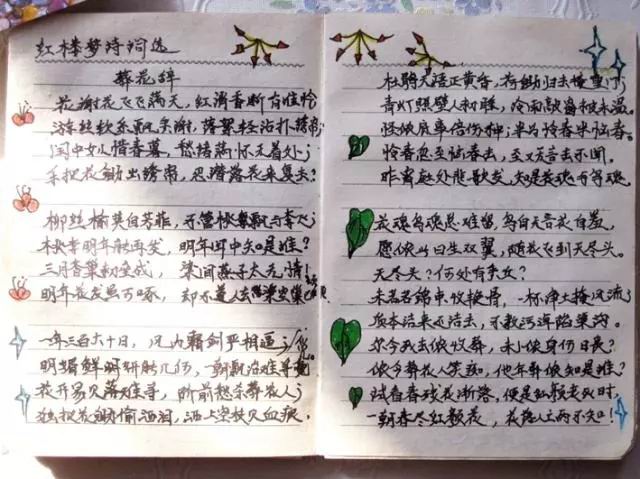 红楼梦诗词选
葬花辞
花谢花飞飞满天，红消香断有谁怜
游丝软系飘春榭，落絮轻沾扑绣帘；
闺中女儿惜春暮，愁绪满怀无着处；
手把花锄出绣帘，忍踏落花来复去？
柳丝榆荚自芳菲，不管桃飘与李飞；
桃李明年能再发，明年闺中知是谁？
三月香巢初垒成，梁间燕子太无情！
明年花发虽可啄，却不道人去梁空巢已倾
一年三百六十日，风刀霜剑严相逼；
明媚鲜妍能几何，一朝飘泊难寻觅
花开易见落难寻，阶前愁杀葬花人；
独把花锄偷洒泪，洒上空枝见血痕。
杜鹃无语正黄昏，荷锄归去掩重门；
青灯照壁人初睡，冷雨敲窗被未温。
怪侬底事倍伤神；半为怜春半恼春。
怜春忽至恼春去，至又无言去不闻。
昨宵庭外悲歌发，知是花魂与鸟魂。
花魂鸟魂总难留，鸟自无言花自羞，
愿侬此日生双翼，随花飞到天尽头。
天尽头？何处有香丘？
未若锦囊收艳骨，一抔净土掩风流；
质本洁来还洁去，不教污淖陷渠沟。
尔今死去侬收葬，未卜侬身何日丧？
侬今葬花人笑痴，他年葬侬知是谁？
试看春残花渐落，便是红颜老死时，
一朝春尽红颜老，花落人亡两不知！